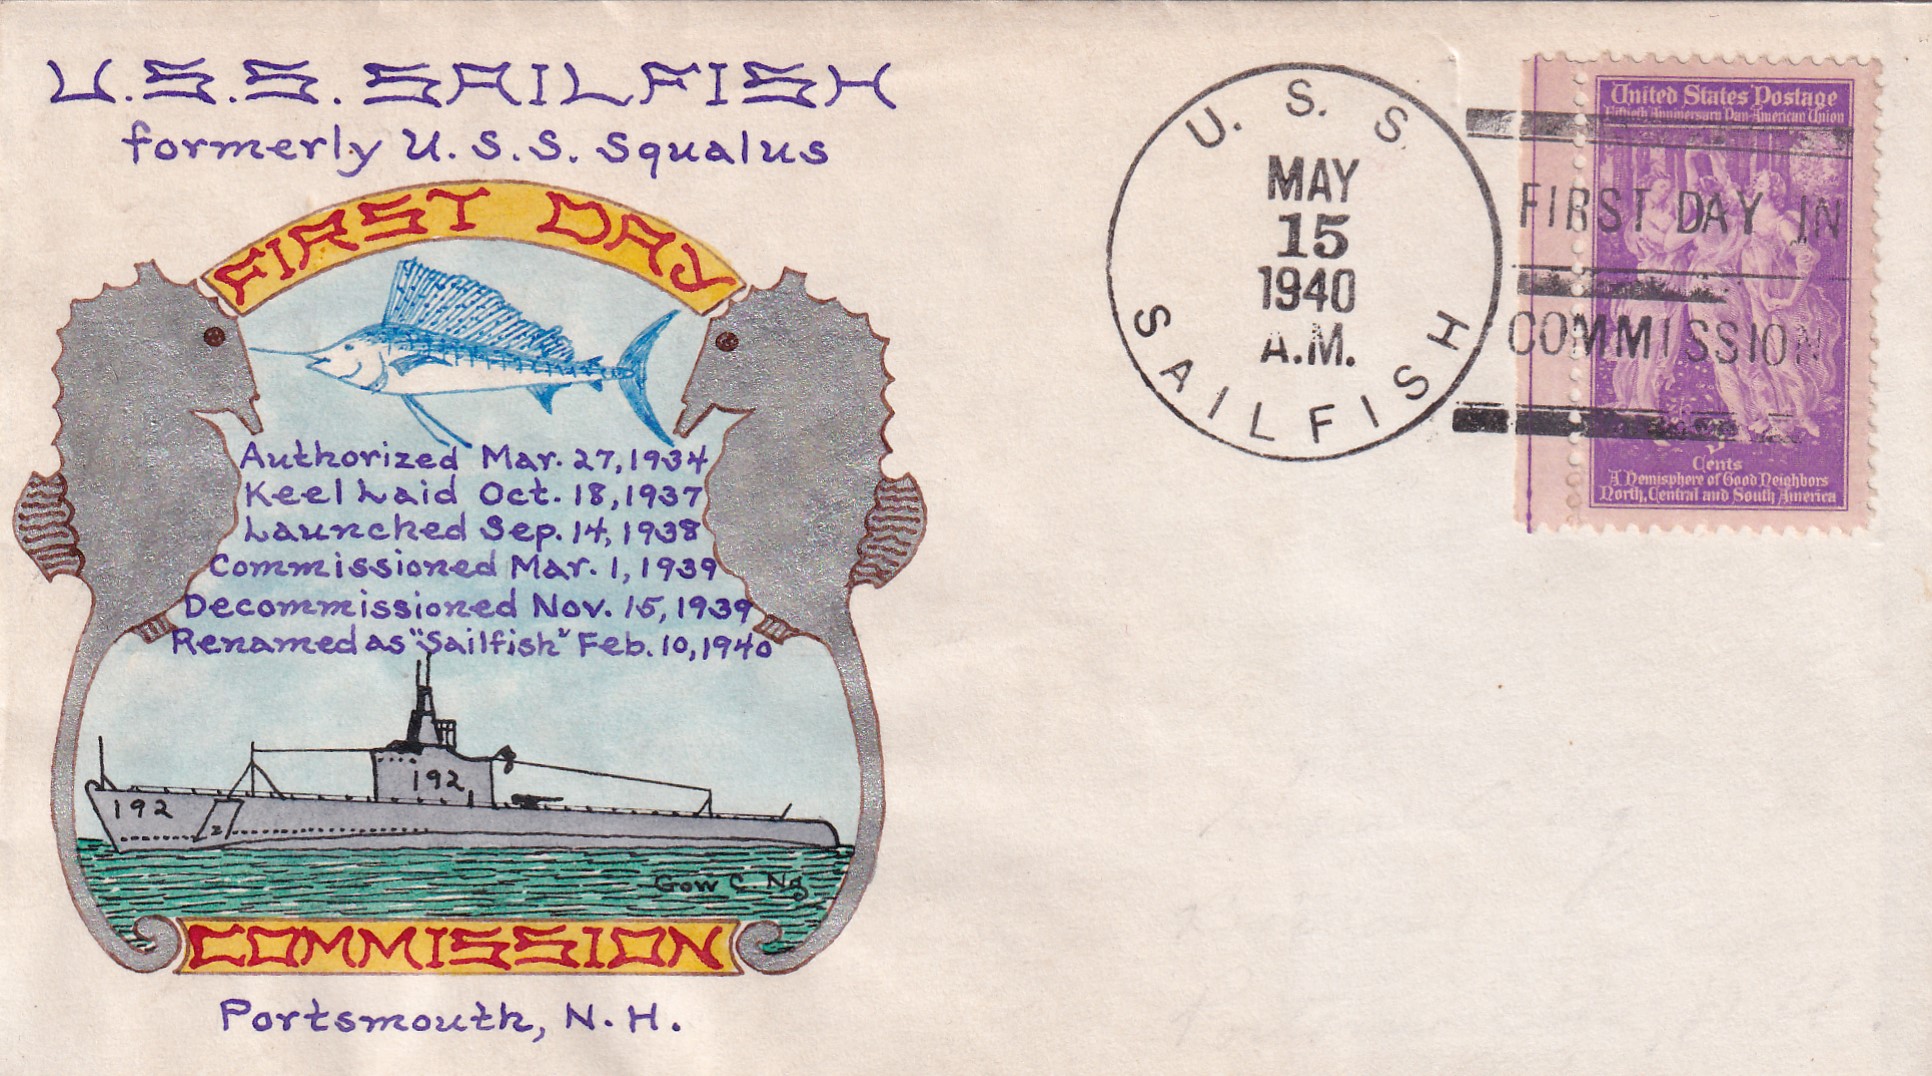 U.S.S. SAILFISH
formerly U.S.S. Squalus
FIRST DAY
Authorized Mar. 27, 1934
Keel Laid Oct. 18, 1937
Launched Sep. 14, 1938
Commissioned Mar. 1, 1939
Decommissioned Nov. 15, 1939
Renamed as "Sailfish" Feb. 10, 1940
192
192
Gow C. Ng
COMMISSION
Portsmouth, N.H.
U. S. S.
MAY
15
1940
A.M.
SAILFISH
FIRST DAY IN
COMMISSION
United States Postage
Fiftieth Anniversary Pan-American Union
Cents
A Hemisphere of Good Neighbors
North, Central and South America